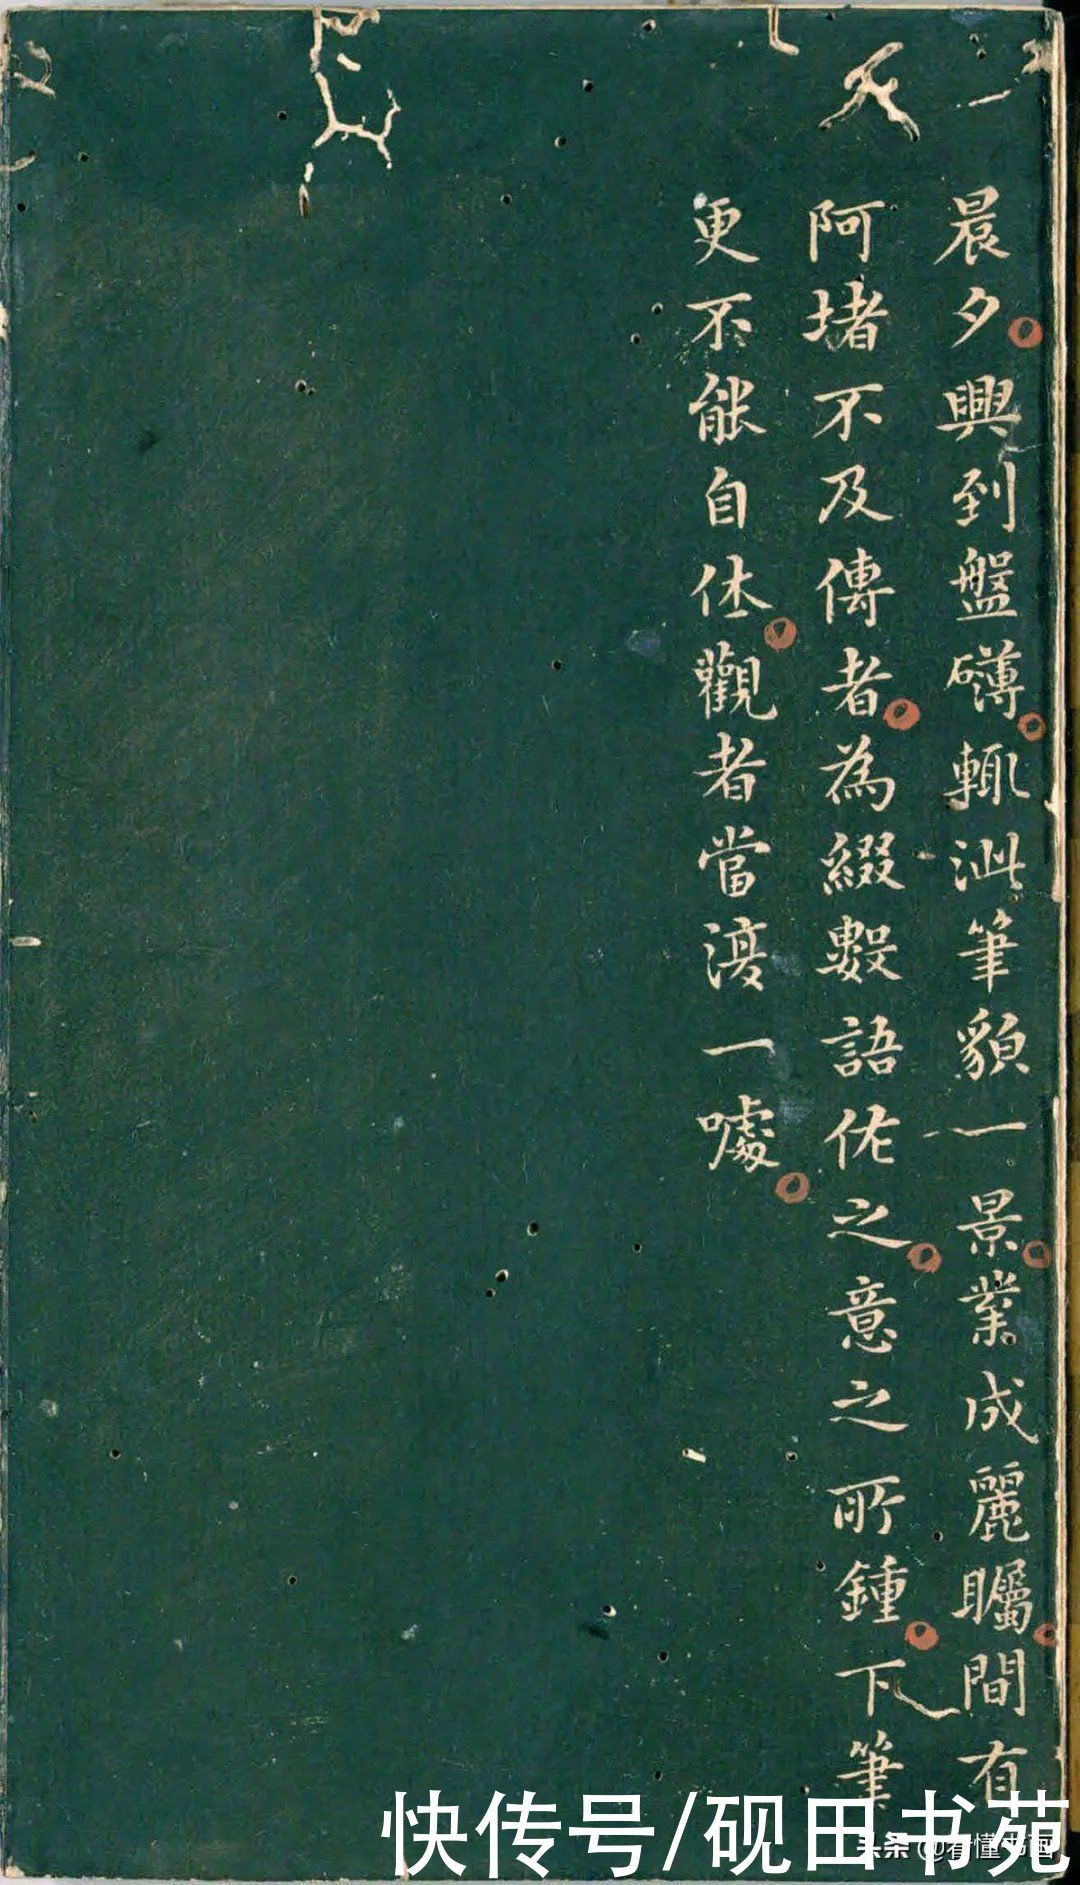 晨夕興到盤礴輒泚筆貌一景業成麗矚間有
阿堵不及傳者為綴數語佐之意之所鍾下筆
更不能自休觀者當渡一噱
快传号/砚田书苑
头条 @看懂书画